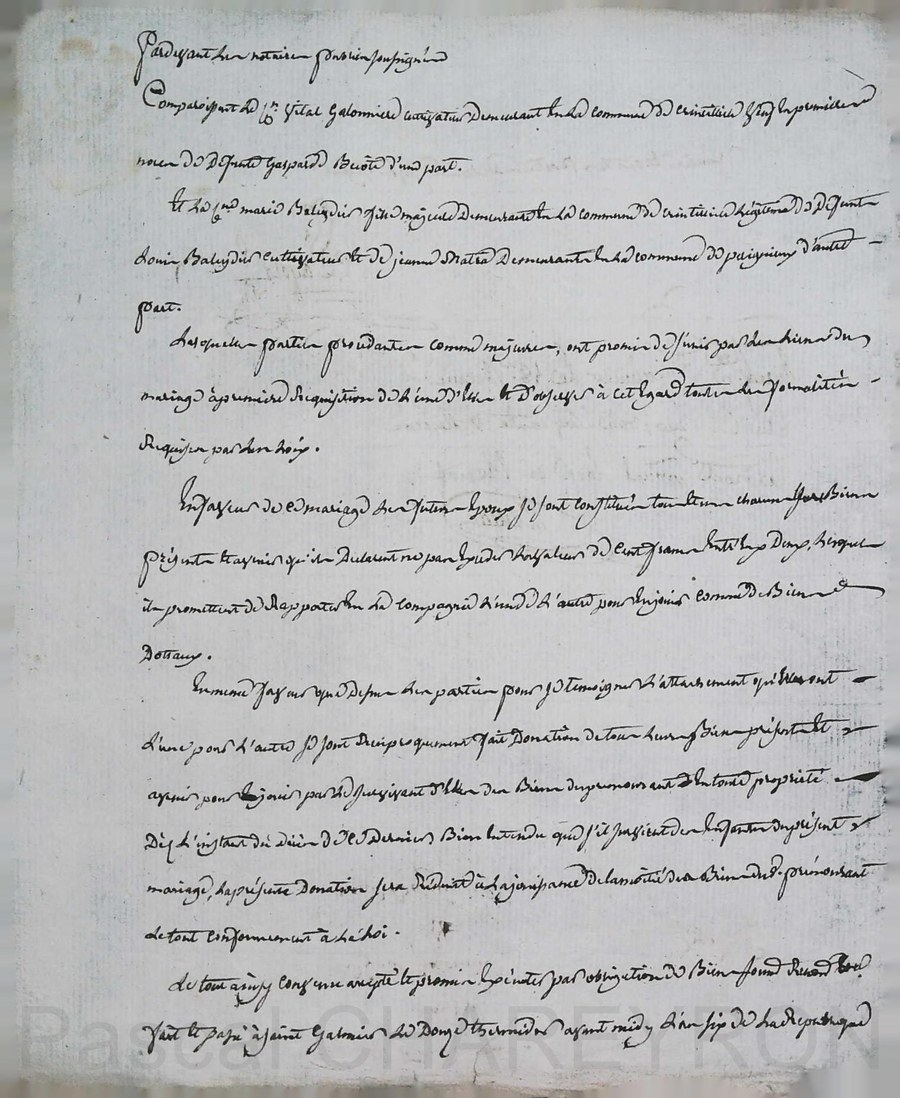 Pardevant les notaires publics soussignés
Comparoissent le Cn. vital Galonnierd cultivateur Demeurant En La commune de veuf En premiere
noces de Defunte Gaspard d'une part.
Et La Cne. marie Baleydier fille majeure Demeurant En La commune de Légitime de Defunt
Louis Baleydier cultivateur Et de jeanne Demeurante En La commune de d'autre
part.
Lesquelles parties procédantes comme majeures, ont promis de s'unir par les liens du
mariage à premiere Requisition de L'une d'Elles Et d'observer à cet Egard toutes les formalités
Requises par les Loix.
En faveur de ce mariage les futurs Epoux se sont constitués tous Leurs chacun Biens
présents Et avenir qu'ils Declarent ne pas Exceder La valeur de Cent francs Entr'Eux Deux, Lesquels
ils promettent de Rapporter En La Compagnie L'un de L'autre pour En jouir comme de Biens
Dotaux.
En meme faveur que Dessus les parties pour se temoigner L'attachement qu'Elles ont
L'une pour L'autre se sont Reciproquement fait Donation de tous Leurs Biens présents Et
avenir pour En jouir par Le survivant d'Elles des Biens du premourant En toute propriété
Dès L'instant du décès de ce Dernier, Bien Entendu que s'il survient des Enfants du présent
mariage, La présente Donation sera Reduite à La jouissance de la moitié des Biens dud. prémourant
le tout conformement à La Loi.
Le tout ainsy convenu accepté Et promis Executer par obligation de Biens
fait Et passé à Saint Galmier Le Douze thermidor avant midy L'an six de La Republique
Pascal CHAREYRON